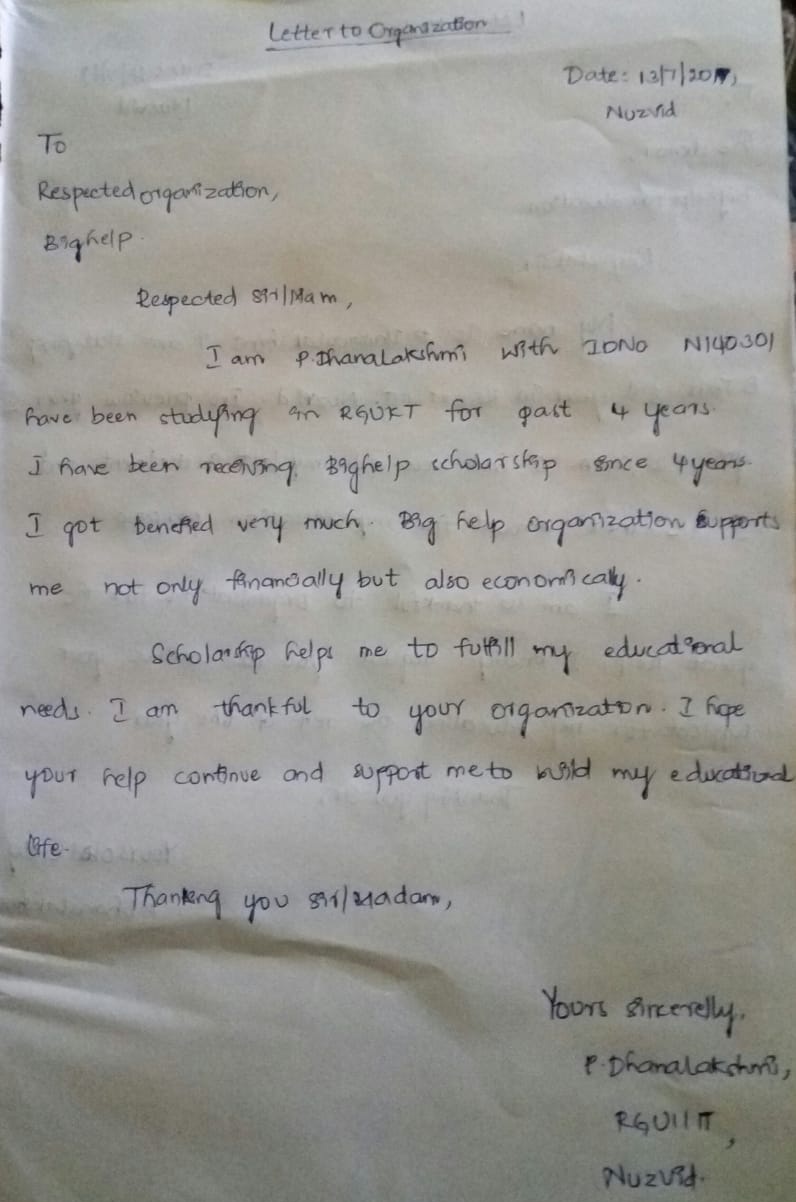 Letter to Organization
Date: 13/7/2017,
Nuzvid
To
Respected organization,
Bighelp.
Respected Sir/Mam,
I am P.DhanaLakshmi with IDNo N140301
have been studying in RGUKT for past 4 years.
I have been receiving Bighelp scholarship since 4years.
I got benefied very much. Big help organization supports
me not only financially but also economically.
Scholarship helps me to fulfill my educational
needs. I am thankful to your organization. I hope
your help continue and support me to build my educational
life.
Thanking you sir/Madam,
Yours sincerelly,
P.Dhanalakshmi,
RGUIIIT,
Nuzvid.